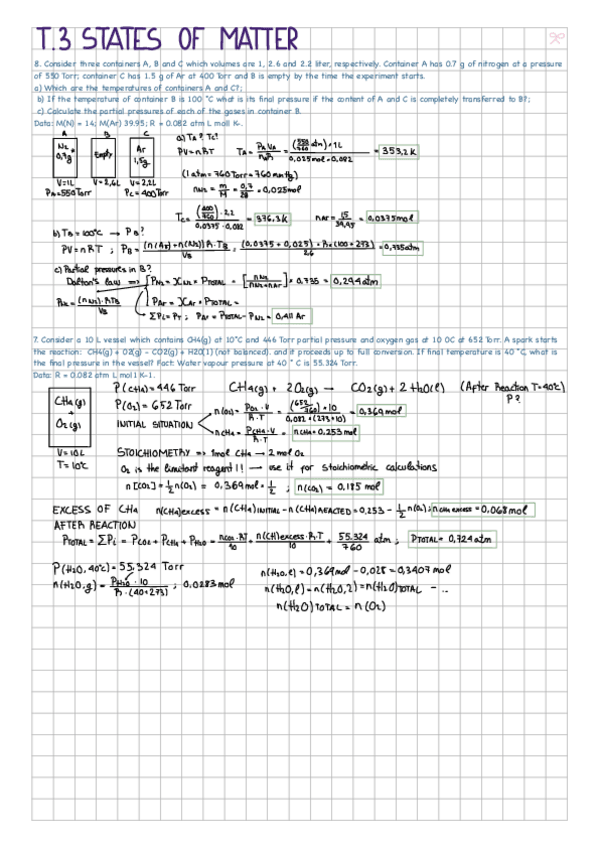 T.3 STATES OF MATTER
8. Consider three containers A, B and C which volumes are 1, 2.6 and 2.2 liter, respectively. Container A has 0.7 g of nitrogen at a pressure
of 550 Torr; container C has 1.5 g of Ar at 400 Torr and B is empty by the time the experiment starts.
a) Which are the temperatures of containers A and C?;
b) If the temperature of container B is 100 °C what is its final pressure if the content of A and C is completely transferred to B?;
c) Calculate the partial pressures of each of the gases in container B.
Data: M(N) = 14; M(Ar) 39.95; R = 0.082 atm L mol1 K-.
A B C
N2 = 0,7g Empty Ar 1,5g
V=1L V=2,6L V=2,2L
PA=550Torr PC=400Torr
a) TA? TC?
PV=nRT TA = PA VA / nAR = (550/760 atm)·1L / 0,025mol·0,082 = 353,2K
(1atm=760Torr=760mmHg)
nN2 = m/M = 0,7/28 = 0,025mol
TC = (400/760)·2,2 / 0,0375·0,082 = 376,3K nAr = 1,5/39,95 = 0,0375mol
b) TB=100°C → PB?
PV=nRT ; PB = (n(Ar)+n(N2))R·TB / VB = (0,0375+0,025)·R·(100+273) / 2,6 = 0,735atm
c) Partial pressures in B?
Dalton's law => PN2 = XN2·PTOTAL = [nN2 / nN2+nAr]·0,735 = 0,294atm
PN2 = (nN2)·RTB / VB PAr = XAr·PTOTAL=
ΣPi=PT ; PAr = PTOTAL-PN2 = 0,411 Ar
7. Consider a 10 L vessel which contains CH4(g) at 10°C and 446 Torr partial pressure and oxygen gas at 10 0C at 652 Torr. A spark starts
the reaction: CH4(g) + O2(g) – CO2(g) + H2O(1) (not balanced). and it proceeds up to full conversion. If final temperature is 40 °C, what is
the final pressure in the vessel? Fact: Water vapour pressure at 40 ° C is 55.324 Torr.
Data: R = 0.082 atm L mol1 K-1.
CH4(g) + O2(g)
V=10L
T=10°C
P(CH4)=446 Torr CH4(g) + 2O2(g) → CO2(g)+2H2O(l) (After Reaction T=40°C) P?
P(O2)=652Torr n(O2)= PO2·V / R·T = (652/760)·10 / 0,082·(273+10) = 0,369mol
INITIAL SITUATION nCH4 = PCH4·V / R·T = nCH4=0,253mol
STOICHIOMETRY => 1mol CH4 → 2mol O2
O2 is the limitant reagent!! → use it for stoichiometric calculations
n[CO2]=1/2 n(O2) = 0,369mol·1/2 ; n(CO2) = 0,185 mol
EXCESS OF CH4 n(CH4)excess = n(CH4)INITIAL-n(CH4)REACTED=0,253 - 1/2 n(O2);nCH4 excess=0,068mol
AFTER REACTION
PTOTAL = ΣPi = PCO2+PCH4+PH2O = nCO2·RT/10 + n(CH)excess·R·T/10 + 55.324/760 atm ; PTOTAL=0,724atm
P(H2O,40°C)=55,324 Torr
n(H2O,g)= PH2O·10 / R·(40+273) ; 0,0283mol
n(H2O,l)=0,369mol-0,028=0,3407mol
n(H2O,l)=n(H2O,2)=n(H2O)TOTAL - ...
n(H2O)TOTAL=n(O2)